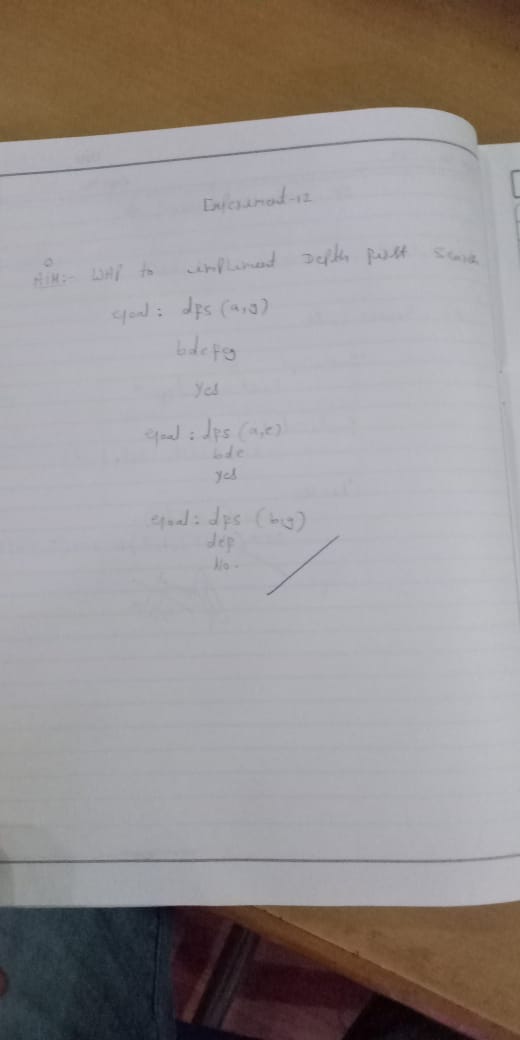 Experiment-12
AIM:- WAP to implement Depth first Search
goal: dfs (a,g)
bdefcg
yes
goal: dfs (a,e)
bde
yes
goal: dfs (b,g)
def
No.